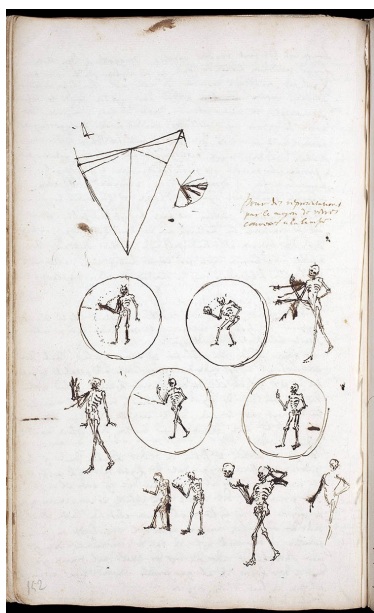 A
Pour des representations
par le moyen de verres
convexes a la lampe
162